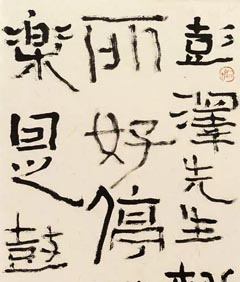 彭澤先生
所好停
楽是鼓